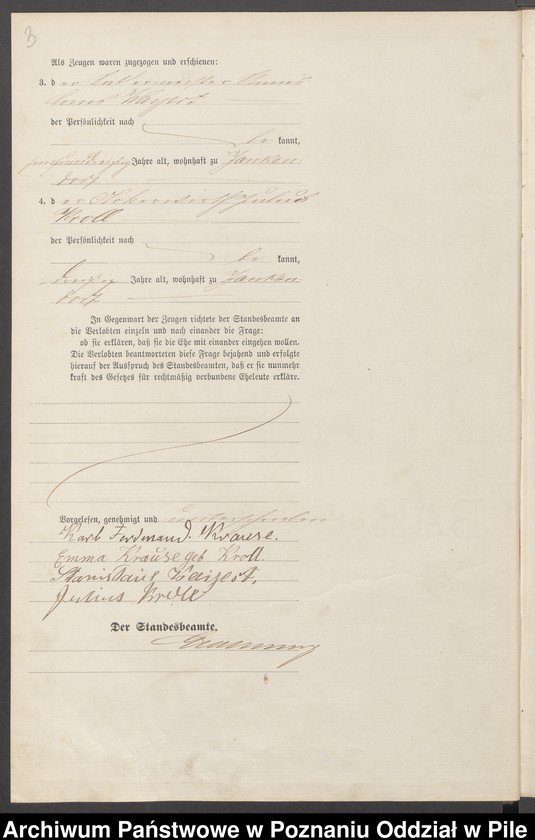 3
Als Zeugen waren zugezogen und erschienen:
3. d er
der Persönlichkeit nach
be kannt,
Jahre alt, wohnhaft zu Jankendorf
4. d er Ackerwirth Julius
Kroll
der Persönlichkeit nach
be kannt,
Jahre alt, wohnhaft zu Jankendorf
In Gegenwart der Zeugen richtete der Standesbeamte an
die Verlobten einzeln und nach einander die Frage:
ob sie erklären, daß sie die Ehe mit einander eingehen wollen.
Die Verlobten beantworteten diese Frage bejahend und erfolgte
hierauf der Ausspruch des Standesbeamten, daß er sie nunmehr
kraft des Gesetzes für rechtmäßig verbundene Eheleute erkläre.
Vorgelesen, genehmigt und unterschrieben
Karl Ferdinand Krause.
Emma Krause geb Kroll.
Julius Kroll
Der Standesbeamte.
Archiwum Państwowe w Poznaniu Oddział w Pile